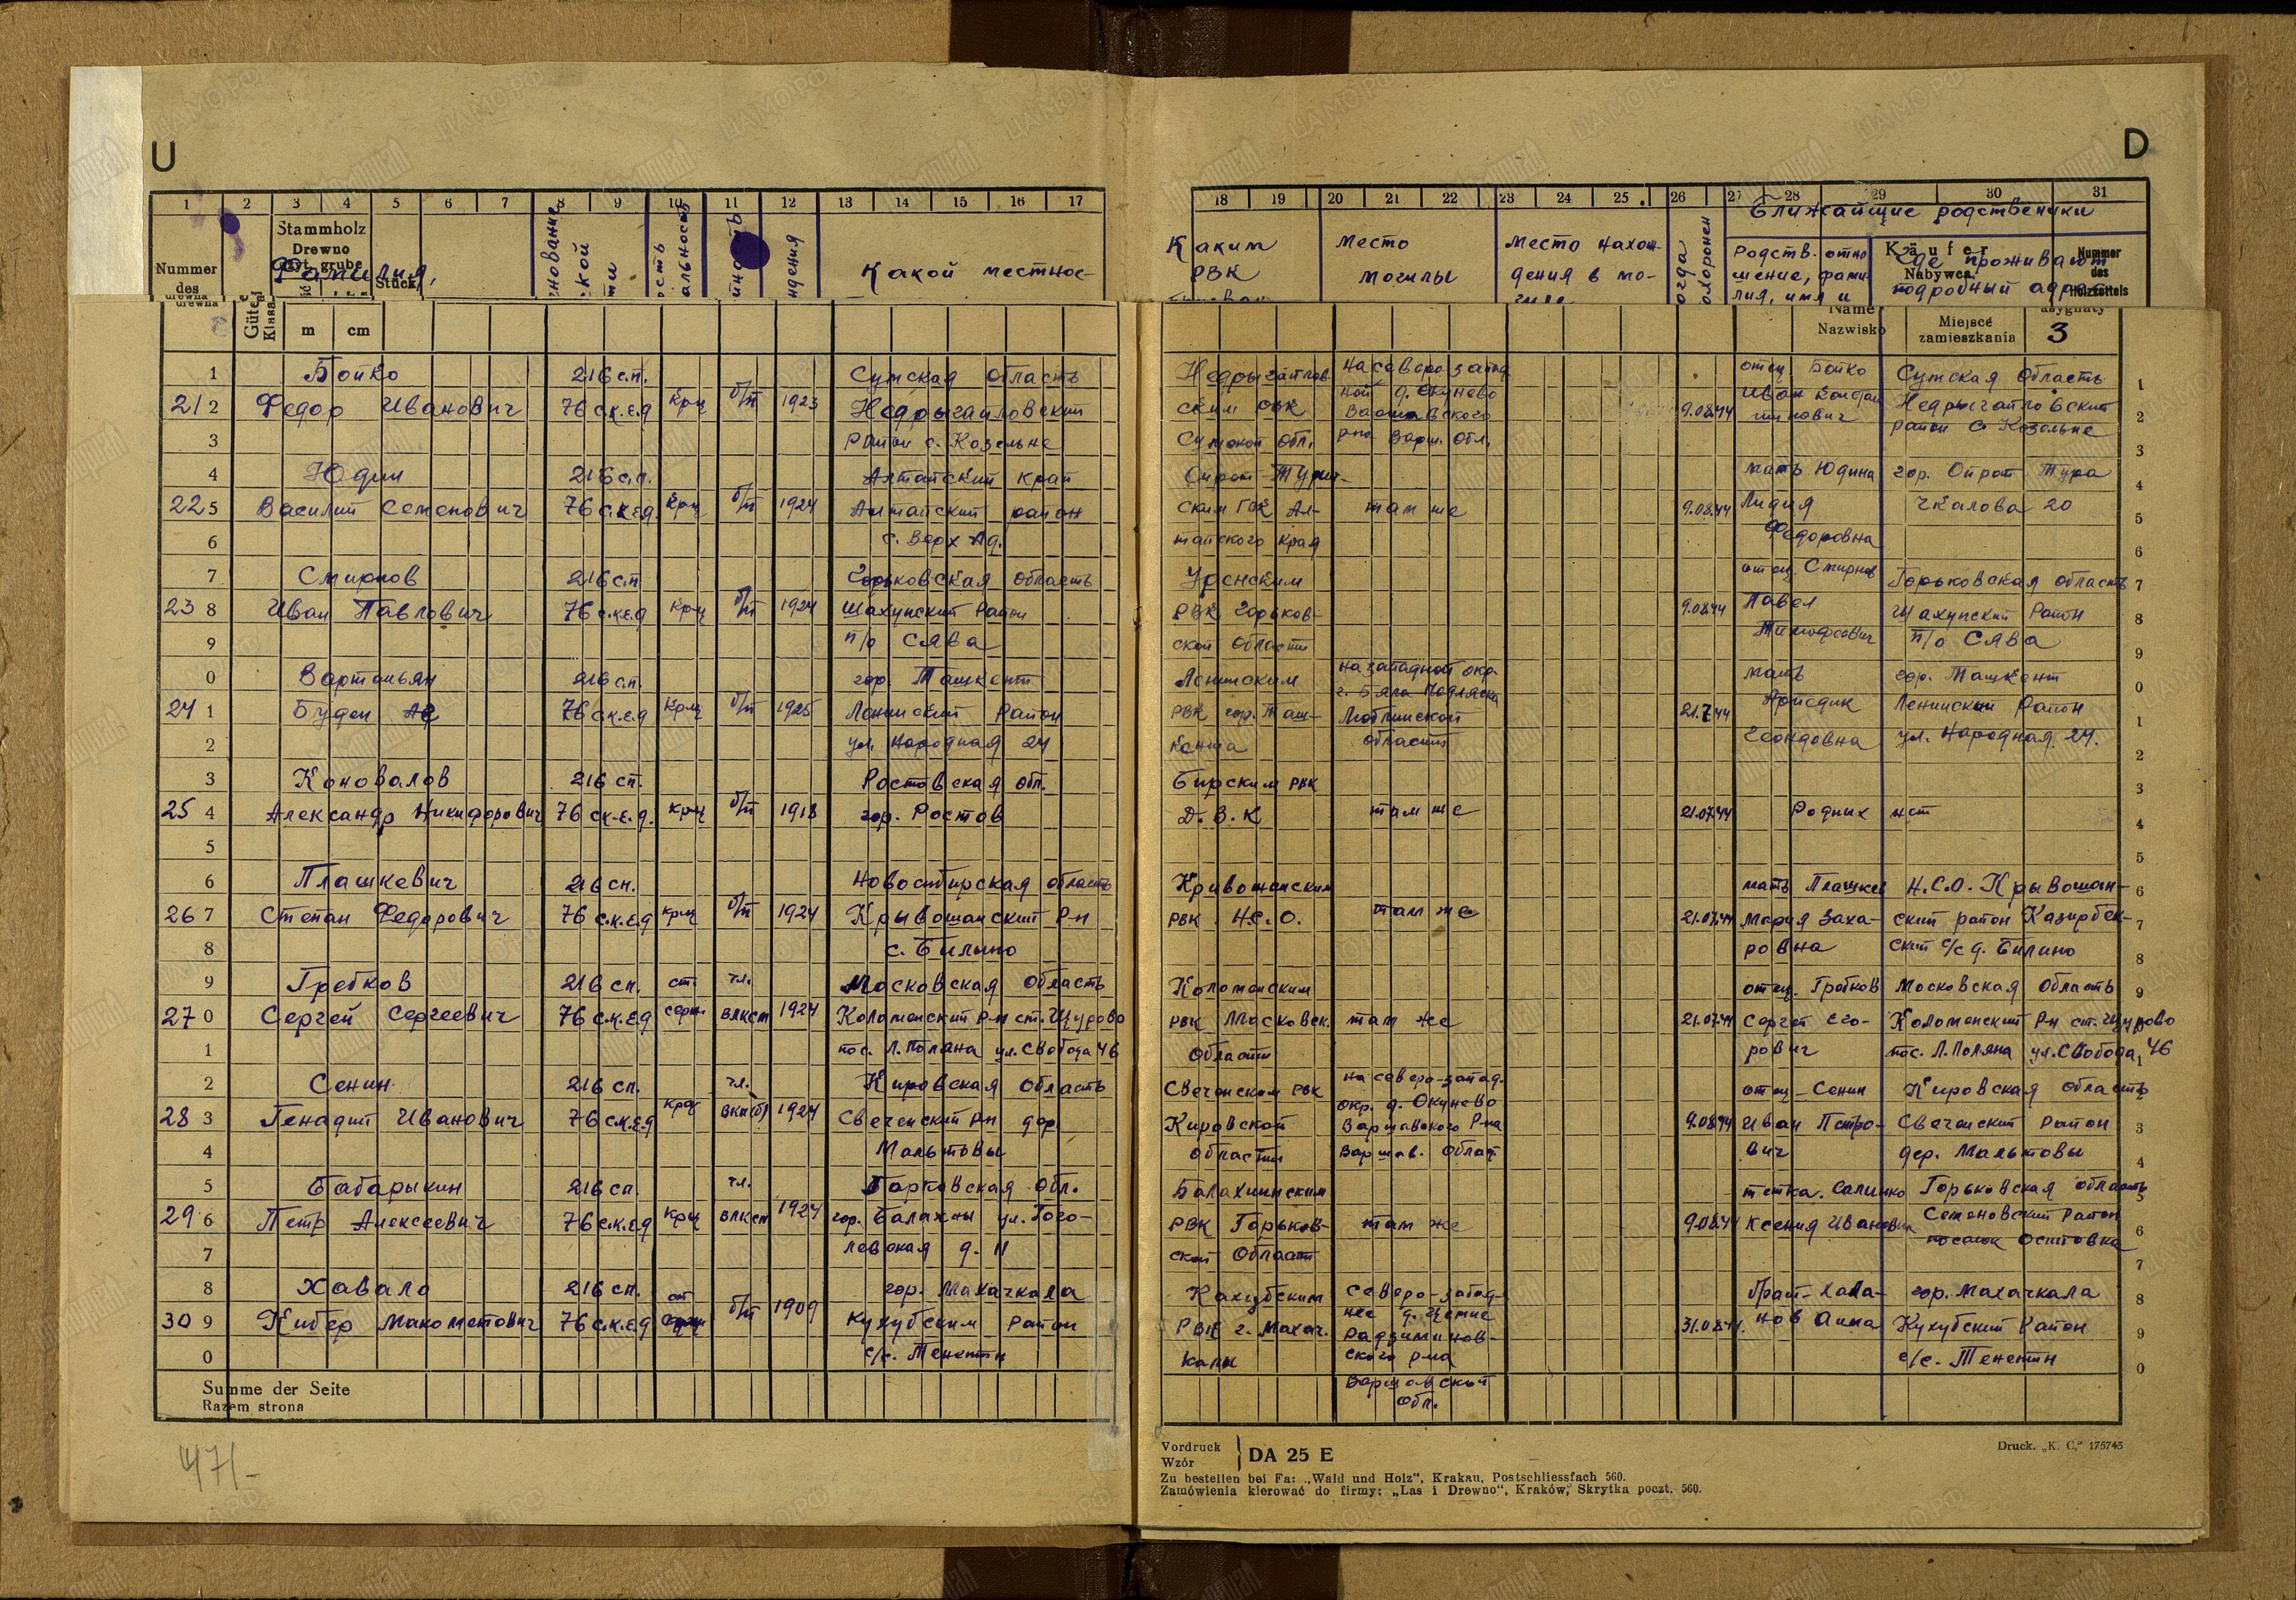 U
D
1 2 3 4 5 6 7 8 9 10 11 12 13 14 15 16 17
18 19 20 21 22 23 24 25 26 27 28 29 30 31
Stammholz
Drewno
Nummer
des
Фамилия,
Stück
Какой местнос-
Каким
РВК
место
могилы
место нахож-
дения в мо-
Ближайшие родственики
Родств. отно
шение, фами
лия, имя и
Käufer
Nabywca
Где проживают
подробный адрес
Nummer
des
Holzzettels
Güte
Klasa
m cm
Name
Nazwisko
Miejsce
zamieszkania
3
1 Бойко 216 с.п. Сумская область
21 2 Федор Иванович 76 с.к.е.д крц б/п 1923 Недрыгайловский
3 район с. Козельне
Недрыгайлов
ским РВК
Сумской обл.
На северо запад
ной д. Окунево
Варшавского
рна Варш. обл.
9.08.44
отец Бойко
Иван
Сумская область
Недрыгайловский
район с Козельне
4 Юдин 216 с.п. Алтайский край
22 5 Василий Семенович 76 с.к.е.д. крц б/п 1924 Алтайский район
6 с. Верх Ад.
Ойрот-Турин-
ским ГВК Ал-
тайского края
там же
9.08.44
мать Юдина
Лидия
Федоровна
гор. Ойрот Тура
Чкалова 20
7 Смирнов 216 сп Горьковская область
23 8 Иван Павлович 76 с.к.е.д крц б/п 1924 Шахунский район
9 п/о Сява
Уренским
РВК Горьков-
ской области
9.08.44
отец. Смирнов
Павел
Тимофеевич
Горьковская область
Шахунский район
п/о Сява
0 Вартаньян 216 сп. гор. Ташкент
24 1 Буден 76 с.к.е.д крц б/п 1925 Ленинский район
2 ул. Народная 24
Ленинским
РВК гор. Таш-
кента
на западной окр.
г. Бяла Подляска
Люблинской
области
21.7.44
мать
Геондовна
гор. Ташкент
Ленинский район
ул. Народная. 24.
3 Коновалов 216 сп. Ростовская обл.
25 4 Александр Никифорович 76 ск.е.д. крц б/п 1918 гор. Ростов
5
Бирским РВК
Д.В.К
там же
21.07.44
Родных нет
6 Плашкевич 216 сп. Новосибирская область
26 7 Степан Федорович 76 с.к.е.д крц б/п 1924 Крывошанский р-н
8 с. Билино
Кривошанским
РВК Н.С.О.
там же
21.07.44
мать Плашкев
Мария Заха-
ровна
Н.С.О. Крывошан-
ский район Казирбек-
ский с/с д. Билино
9 Гребков 216 сп. ст. чл. Московская область
27 0 Сергей Сергеевич 76 с.к.е.д серж. ВЛКСМ 1924 Коломенский р-н ст. Щурово
1 пос. Л.Поляна ул. Свобода 46
Коломенским
РВК Московск.
области
там же
21.07.44
отец. Гребков
Сергей Его-
рович
Московская область
Коломенский р-н ст. Щурово
пос. Л.Поляна ул. Свобода, 46
2 Сенин 216 сп. чл. Кировская область
28 3 Генадий Иванович 76 с.к.е.д крц ВКП(б) 1924 Свеченский р-н дер.
4 Мальтовы
Свеченским РВК
Кировской
области
на северо-запад.
окр. д. Окунево
Варшавского р-на
Варшав. област
9.08.44
отец - Сенин
Иван Петро-
вич
Кировская область
Свеченский район
дер. Мальтовы
5 Бабарыкин 216 сп. чл. Горковская обл.
29 6 Петр Алексеевич 76 с.к.е.д крц ВЛКСМ 1924 гор. Балахны ул. Гого-
7 левская д. 11
Балахнинским
РВК Горьков-
ской област
там же
9.08.44
тетка. Салинко
Ксения Ивановна
Горьковская область
Семеновский район
поселок Остовка
8 Хавало 216 сп. ст гор. Махачкала
30 9 Кибер Макометович 76 с.к.е.д серж б/п 1909 Кухубским район
0 с/с. Тенетти
Кахубским
РВК г. Махач.
калы
Северо-запад-
нее
Радзиминов-
ского р-на
Варшавской
обл.
31.08.44.
Брат-Хала-
нов Анна
гор. Махачкала
Кухубский район
с/с. Тенетти
Summe der Seite
Razem strona
471-
Vordruck
Wzór
DA 25 E
Druck. „K. C," 175743
Zu bestellen bei Fa: „Wald und Holz", Krakau, Postschliessfach 560.
Zamówienia kierować do firmy: „Las i Drewno", Kraków, Skrytka poczt. 560.